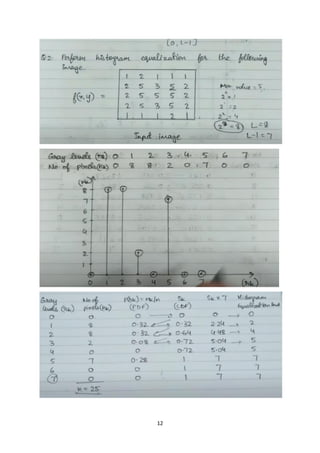 [0, L-1]
Q2. Perform histogram equalization for the following
image.
f(x,y) =
1 2 1 1 1
2 5 3 5 2
2 5 5 5 2
2 5 3 5 2
1 1 1 2 1
Max value = 5.
2¹=
2²=
2³=8
L=8
L-1=7
Input image
Gray levels (rk) 0 1 2 3 4 5 6 7
No of pixels(nk) 0 8 8 2 0 7 0 0
(nk)
8
7
6
5
4
3
2
1
0 1 2 3 4 5 6 7 (rk)
Gray No of P(rk) = nk/n Sk Sk × 7 Histogram
levels (rk) pixels(nk) (PDF) (CDF) Equalization level
0 0 0 0 0 0
1 8 0.32 0.32 2.24 2
2 8 0.32 0.64 4.48 4
3 2 0.08 0.72 5.04 5
4 0 0 0.72 5.04 5
5 7 0.28 1 7 7
6 0 0 1 7 7
7 0 0 1 7 7
n = 25
12